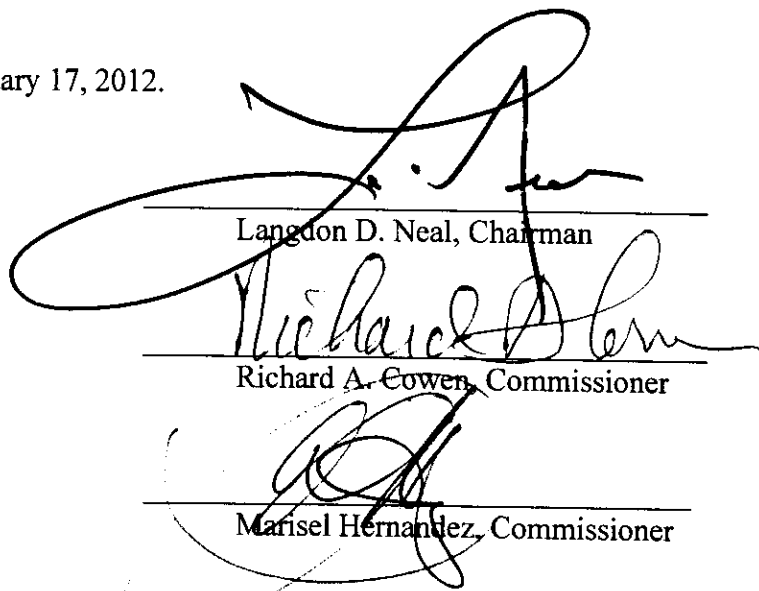 ary 17, 2012.
Langdon D. Neal, Chairman
Richard
Richard A. Cowen, Commissioner
Marisel Hernandez, Commissioner